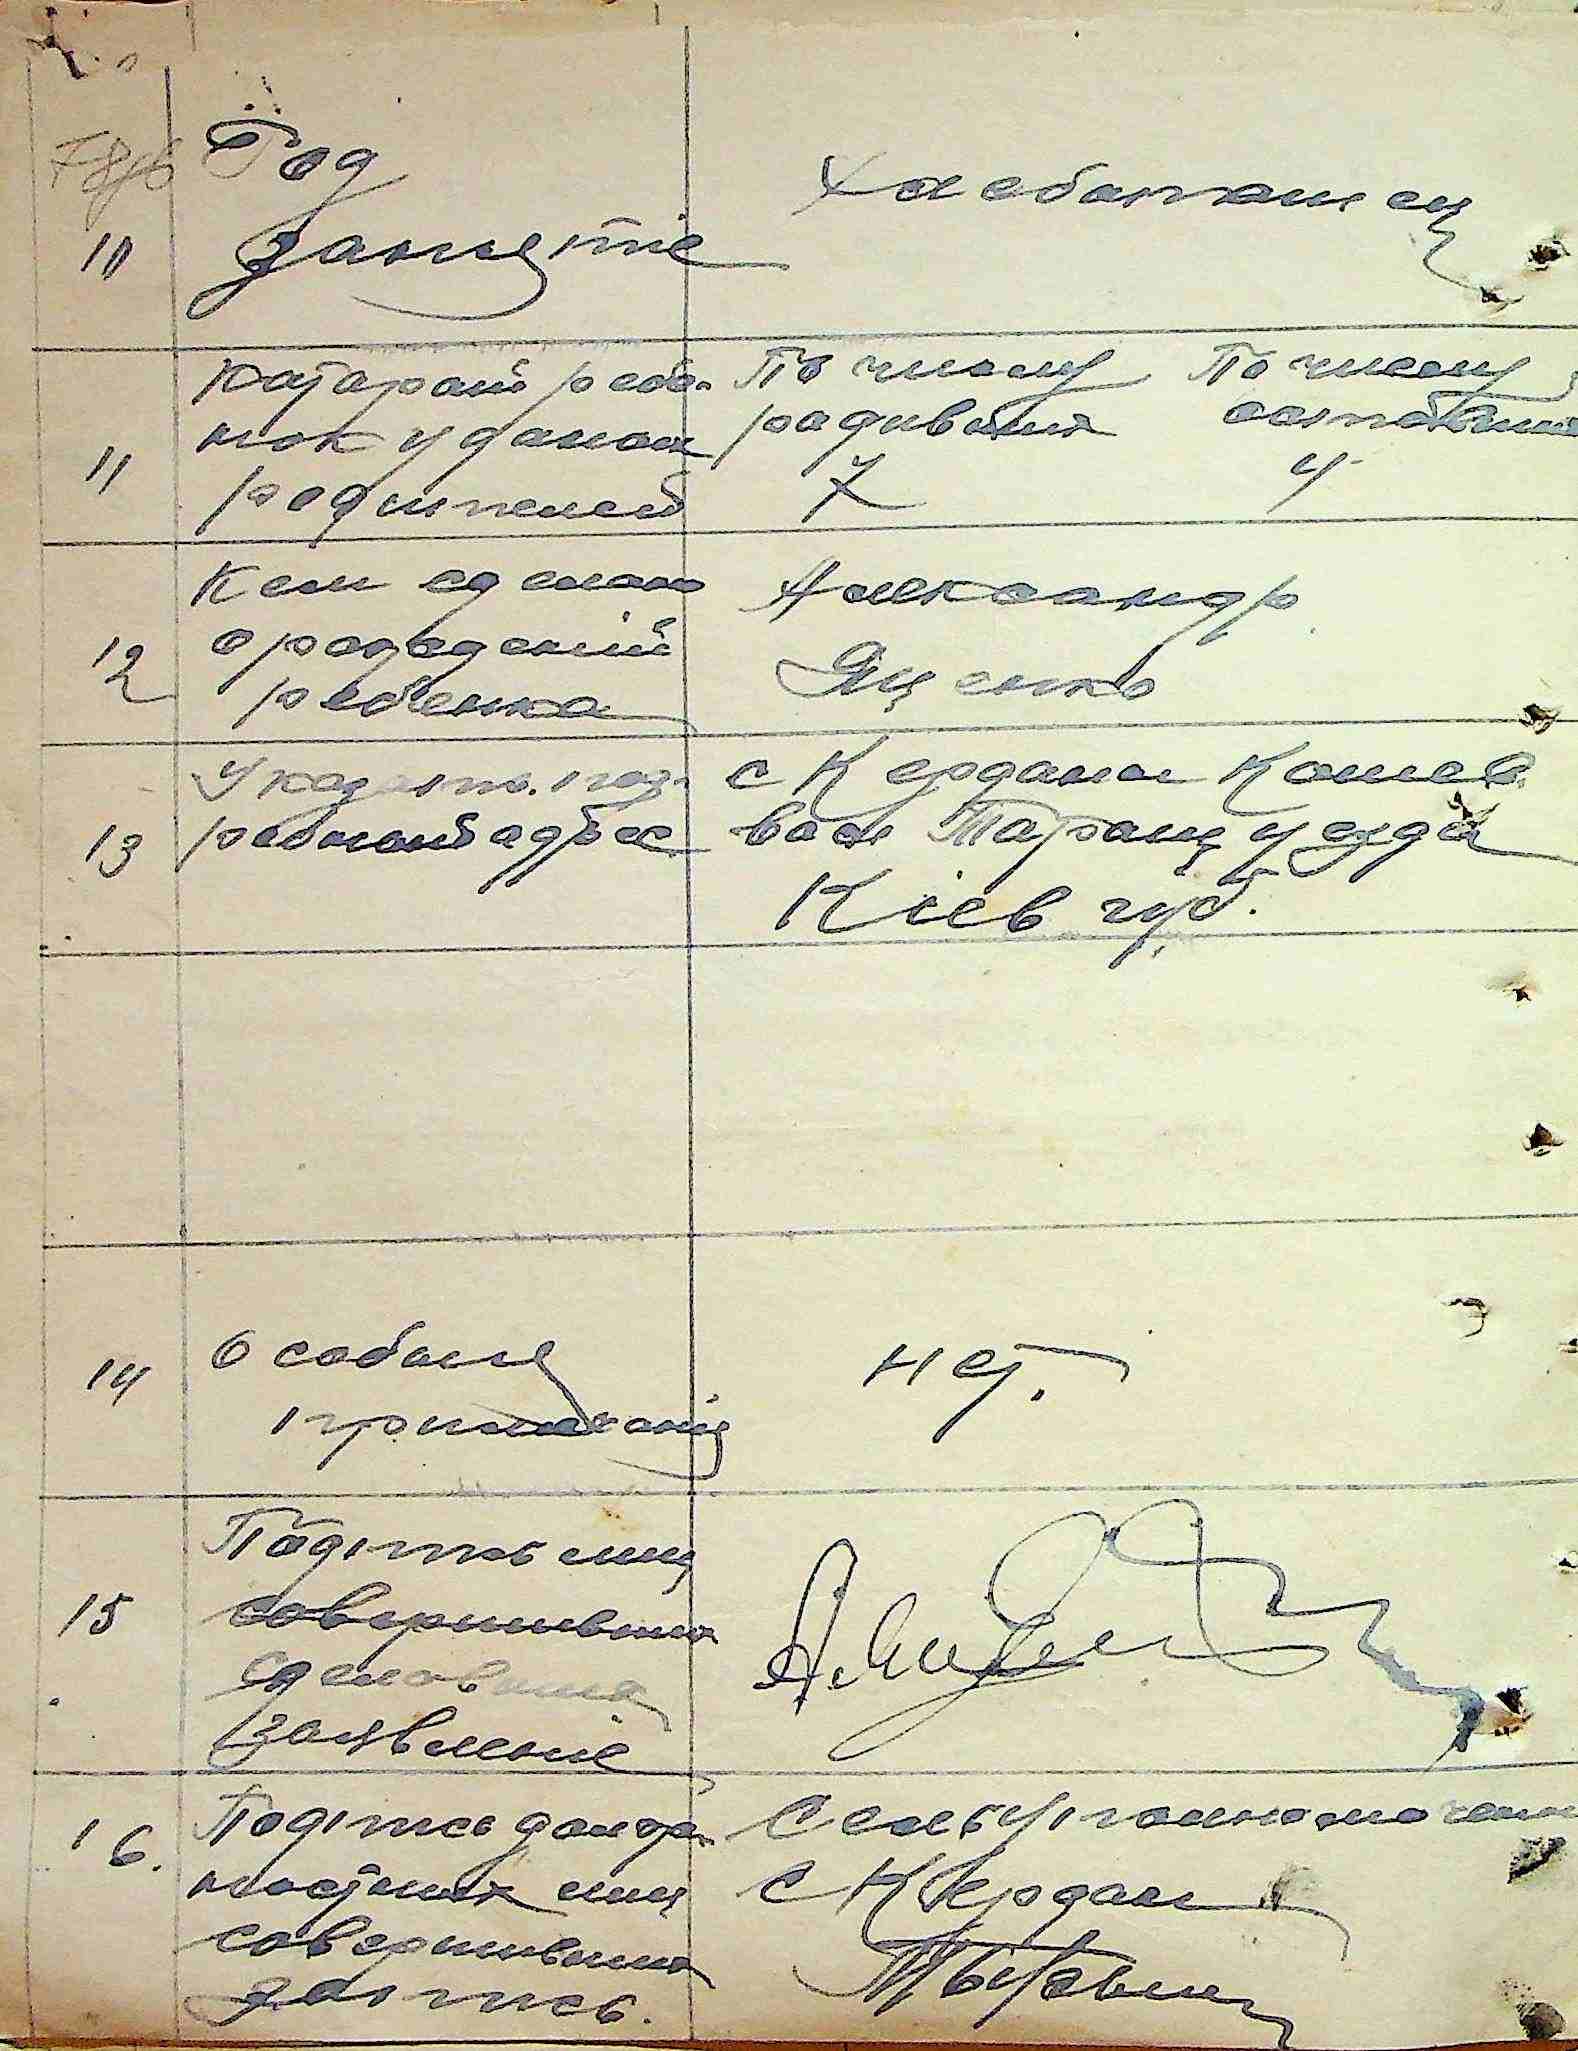 Год
10
занятіе
Хлебопашец
Который ребе-
нок у даных
11
родителей
По числу
родившихся
7
По числу
4
Кем сделано
о рождений
12
ребенка
Александр
Яценко
Указать под-
13
робный адрес
с Кердани Кошев
вол Таращ уезда
Кіев губ.
14
Особыя
примечанія
нет.
Подпись лиц
15
совершивших
сделавших
заявленіе
16.
Подпись долж-
ностных лиц
совершивших
запись.
Сельуполномочен
с Кердан